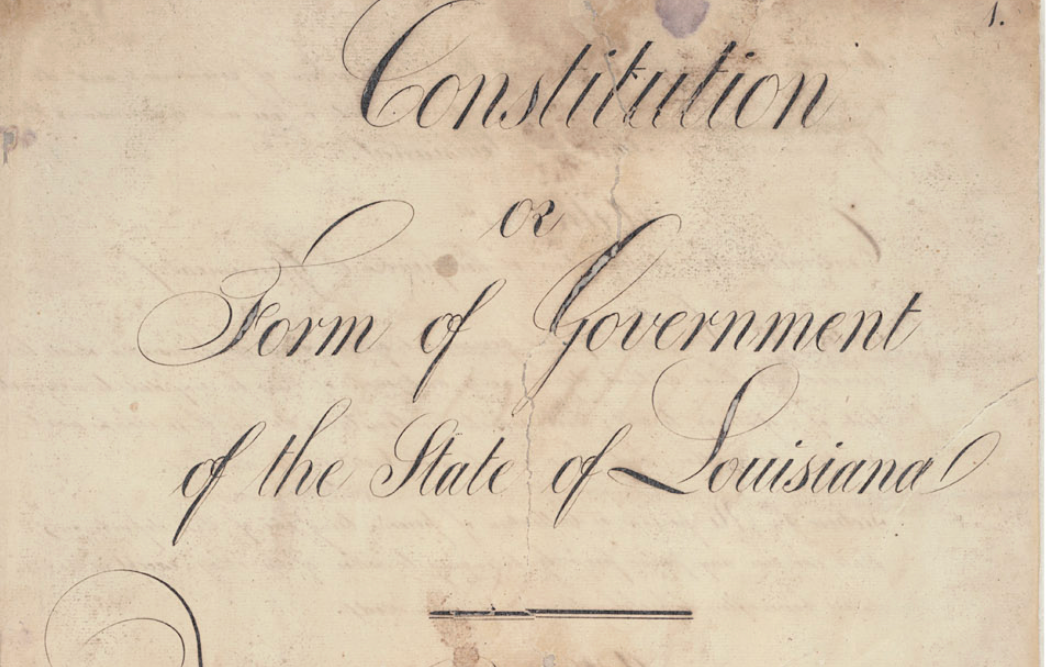 1.
Constitution
or
Form of Government
of the State of Louisiana